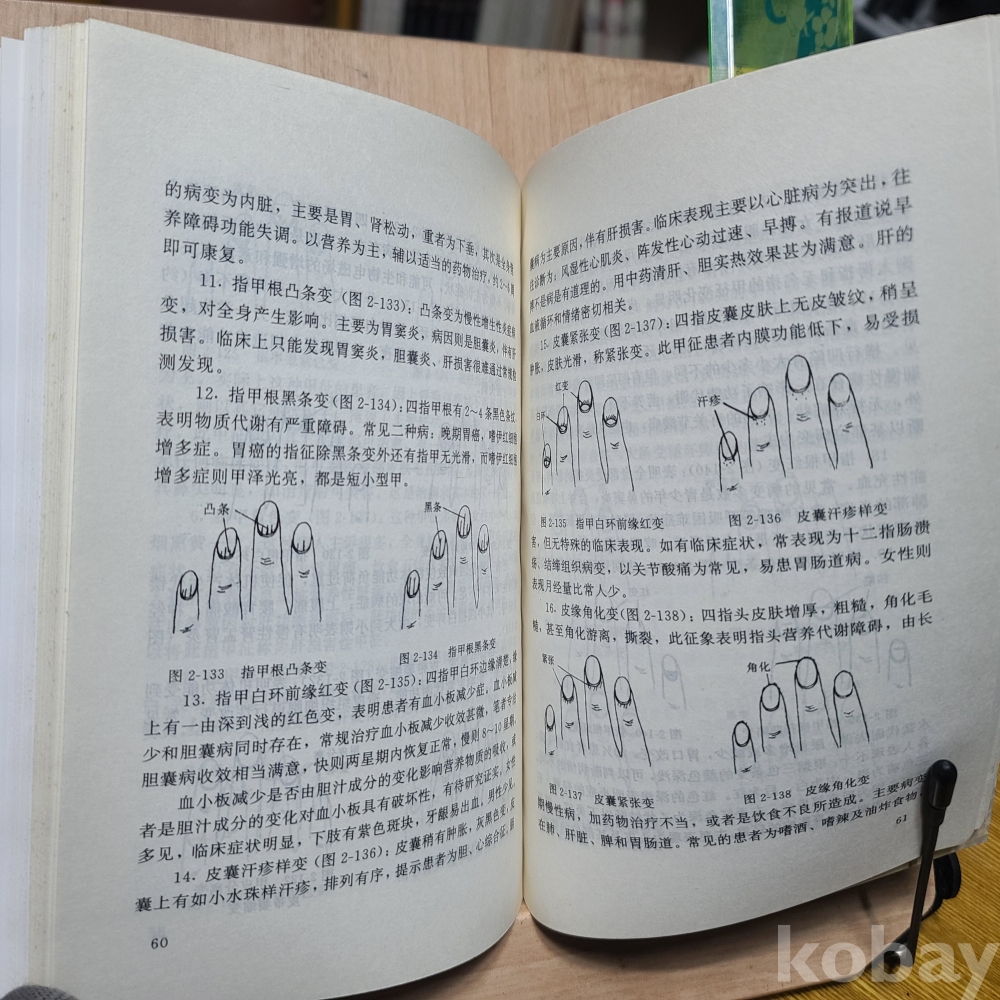 的病变为内脏，主要是胃、肾松动，重者为下垂，其次是全身营
养障碍功能失调。以营养为主，辅以适当的药物治疗，约2~6周
即可康复。
11. 指甲根凸条变（图2-133）：凸条变为慢性增生性炎症病
变，对全身产生影响。主要为胃窦炎，病因则是胆囊炎，伴有肝
损害。临床上只能发现胃窦炎，胆囊炎、肝损害很难通过常规检
测发现。
12. 指甲根黑条变（图2-134）：四指甲根有2~4条黑色条纹，
表明物质代谢有严重障碍。常见二种病：晚期胃癌，嗜伊红细胞
增多症。胃癌的指征除黑条变外还有指甲无光滑，而嗜伊红细胞
增多症则甲泽光亮，都是短小型甲。
凸条
黑条
图2-133 指甲根凸条变
图2-134 指甲根黑条变
13. 指甲白环前缘红变（图2-135）：四指甲白环边缘清楚，缘
上有一由深到浅的红色变，表明患者有血小板减少症。血小板减
少和胆囊病同时存在，常规治疗血小板减少收效甚微，笔者专治
胆囊病收效相当满意，快则两星期内恢复正常，慢则8~10星期。
血小板减少是否由胆汁成分的变化影响营养物质的吸收，或
者是胆汁成分的变化对血小板具有破坏性，有待研究证实。女性
多见，临床症状明显，下肢有紫色斑块，牙龈易出血。男性少见，
14. 皮囊汗疹样变（图2-136）：皮囊稍有肿胀，灰黑色变，皮
囊上有如小水珠样汗疹，排列有序，提示患者为胆、心综合征，
60
囊病为主要原因，伴有肝损害。临床表现主要以心脏病为突出，往
往诊断为：风湿性心肌炎、阵发性心动过速、早搏。有报道说早
搏不是病是有道理的。用中药清肝、胆实热效果甚为满意。肝的
血液循环和情绪密切相关。
15. 皮囊紧张变（图2-137）：四指皮囊皮肤上无皮皱纹，稍呈
肿胀，皮肤光滑，称紧张变。此甲征患者内膜功能低下，易受损
红变
白环
汗疹
图2-135 指甲白环前缘红变
图2-136 皮囊汗疹样变
害，但无特殊的临床表现。如有临床症状，常表现为十二指肠溃
疡、结缔组织病变，以关节酸痛为常见，易患胃肠道病。女性则
表现月经量比常人少。
16. 皮缘角化变（图2-138）：四指头皮肤增厚，粗糙，角化毛
糙，甚至角化游离，撕裂，此征象表明指头营养代谢障碍，由长
紧张
角化
图2-137 皮囊紧张变
图2-138 皮缘角化变
期慢性病，加药物治疗不当，或者是饮食不良所造成。主要病变
在肺、肝脏、脾和胃肠道。常见的患者为嗜酒、嗜辣及油炸食物
61
kobay